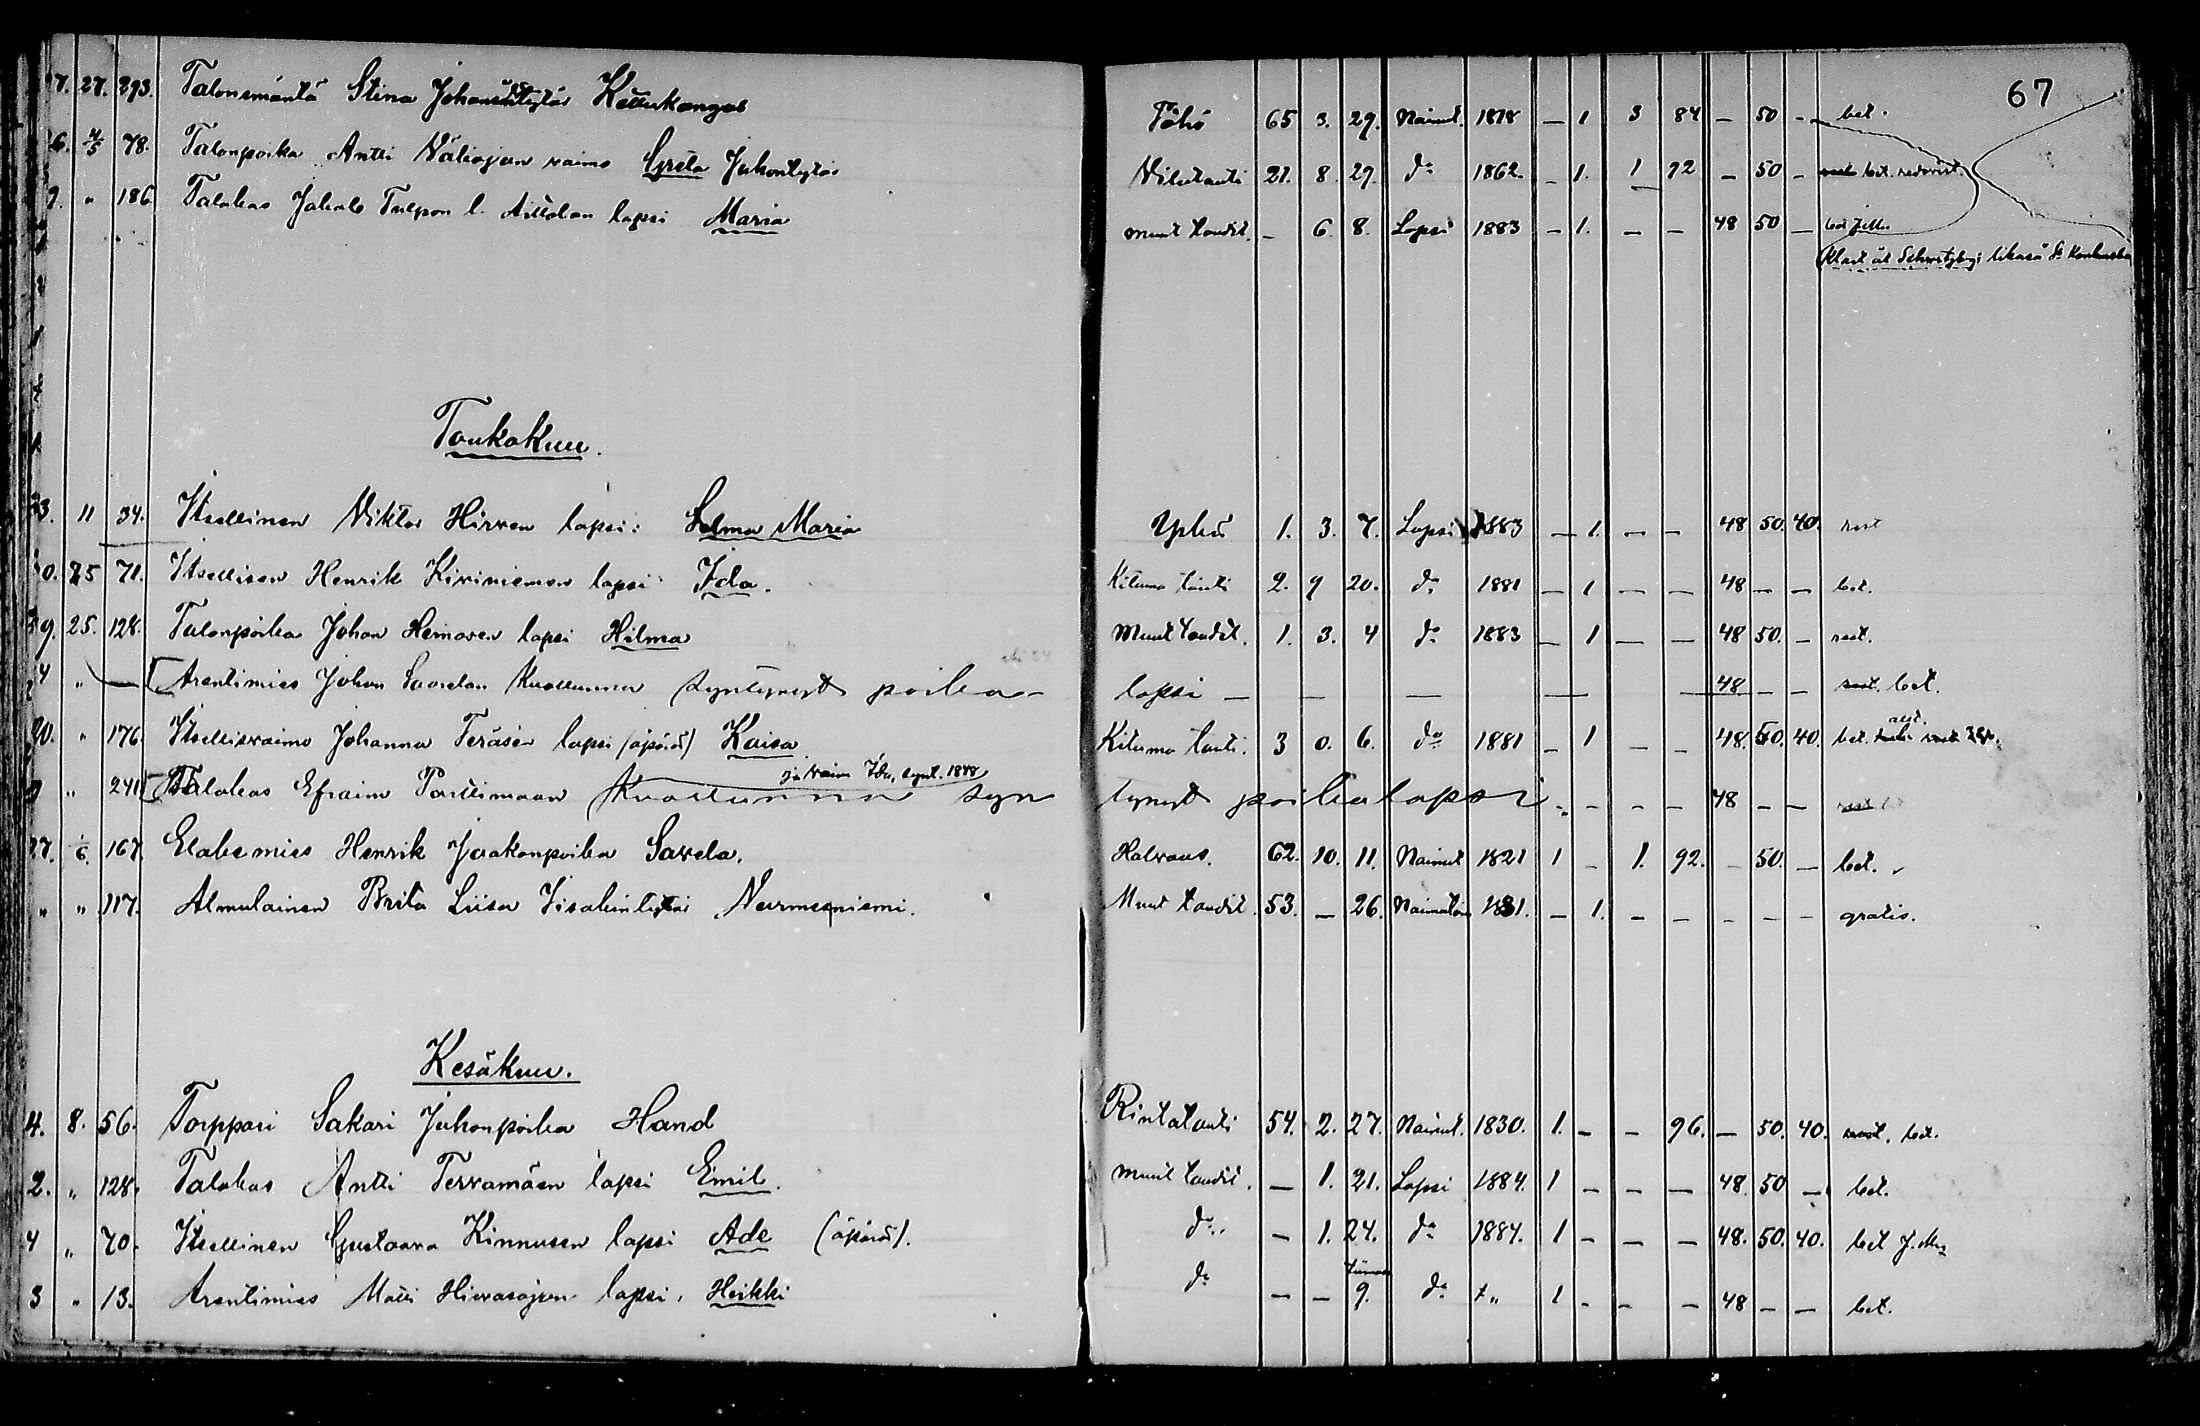 67
27. 293. Talonemäntä Stina Johanintytär Kellukangas Tähö 65 3. 29. Nainut. 1818 — 1 3 84 — 50 - - bet.
6. 4/5 78. Talonpoika Antti Väliojan vaimo Greta Juhontytär Vilutauti 21. 8. 29. do 1862. — 1. 1 92 — 50 — bet.
9. " 186 Talokas Jakob lapsi Maria muut taudit. — 6 8. Lapsi 1883 — 1. — — 48 50 —
Toukokuu.
3. 11 34. Itsellinen Viktor Hirven lapsi: Selma Maria Yskä 1. 3. 7. Lapsi 1883 — 1. — — 48 50. 40. rest
0. 25 71. Itsellisen Henrik Kiviniemen lapsi Ida. Kituma tauti 2. 9 20. do 1881 — 1 — — 48 — — bet.
9. 25. 128. Talonpoika Johan Heinosen lapsi Hilma Muut taudit. 1. 3. 4 do 1883 — 1 — — 48 50. — rest.
4 " — Arentimies Johan Saarelan kuolluna syntynyt poika- lapsi — — — — — 48 — — rest. bet.
20. " 176. Itsellisvaimo Johanna Teräsen lapsi (äpärä) Kaisa Kituma tauti. 3 0. 6. do 1881 — 1 — — 48. 50. 40. bet.
" 241 Talokas Efraim Parttimaan ja vaim Ida, synt. 1848 kuolluna syn tynyt poika lapsi - - - - 48 — — rest
27. 1/6. 167. Elakemies Henrik Jaakonpoika Savela. Halvaus. 62. 10. 11. Nainut 1821 1 - 1. 92. — 50. — bet.
" " 117. Almulainen Brita Liisa Iisakintytär Nurmesniemi. Muut taudit. 53. — 26. Naimaton 1831. — 1. - - - - - gratis.
Kesäkuu.
4. 8. 56. Torppari Sakari Juhonpoika Hand Rintatauti 54. 2. 27. Nainut. 1830. 1. - - 96. — 50. 40. rest. bet.
2. " 128. Talokas Antti Tervamäen lapsi Emil. muut taudit. — 1. 21. Lapsi 1884. 1 - - — 48. 50 — bet.
4 " 70. Itsellinen Gustaava Kinnusen lapsi Ade (äpärä). do — 1. 24. do 1884. 1 - - — 48. 50. 40. bet
3 " 13. Arentimies Matti Hirvasojan lapsi. Heikki do — — 9. do " 1 - - - 48 — — bet.